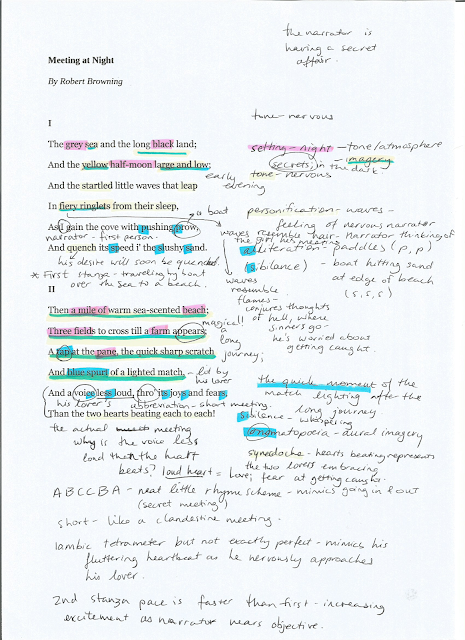 the narrator is
having a secret
affair.
Meeting at Night
By Robert Browning
tone - nervous
I
The grey sea and the long black land;
setting - night - tone/atmosphere
And the yellow half-moon large and low;
secrets, in the dark
- imagery
And the startled little waves that leap
early
evening
tone - nervous
In fiery ringlets from their sleep,
boat
personification - waves -
feeling of nervous narrator
As I gain the cove with pushing prow,
waves resemble hair - narrator thinking of
the girl he's meeting
narrator - first person.
alliteration - paddles (p, p)
And quench its speed i' the slushy sand.
his desire will soon be quenched.
(sibilance) - boat hitting sand
at edge of beach
(s, s, s)
* First stanza - traveling by boat
over the sea to a beach.
waves
resemble
flames -
conjures thoughts
of hell, where
sinners go -
he's worried about
getting caught.
II
Then a mile of warm sea-scented beach;
Three fields to cross till a farm appears;
magical!
a
long
journey;
A tap at the pane, the quick sharp scratch
And blue spurt of a lighted match,
- lit by
his lover
the quick moment of the
match lighting after the
long journey
And a voice less loud, thro' its joys and fears,
his lover's
abbreviation - short meeting.
sibilance - whispering
Than the two hearts beating each to each!
onomatopoeia - aural imagery
the actual meeting
why is the voice less
loud than the heart
beats? loud heart = love; fear at getting caught.
synedoche - hearts beating represents
the two lovers embracing
ABCCBA - neat little rhyme scheme - mimics going in & out
(secret meeting)
short - like a clandestine meeting.
Iambic tetrameter but not exactly perfect - mimics his
fluttering heartbeat as he nervously approaches
his lover.
2nd stanza pace is faster than first - increasing
excitement as narrator nears objective.